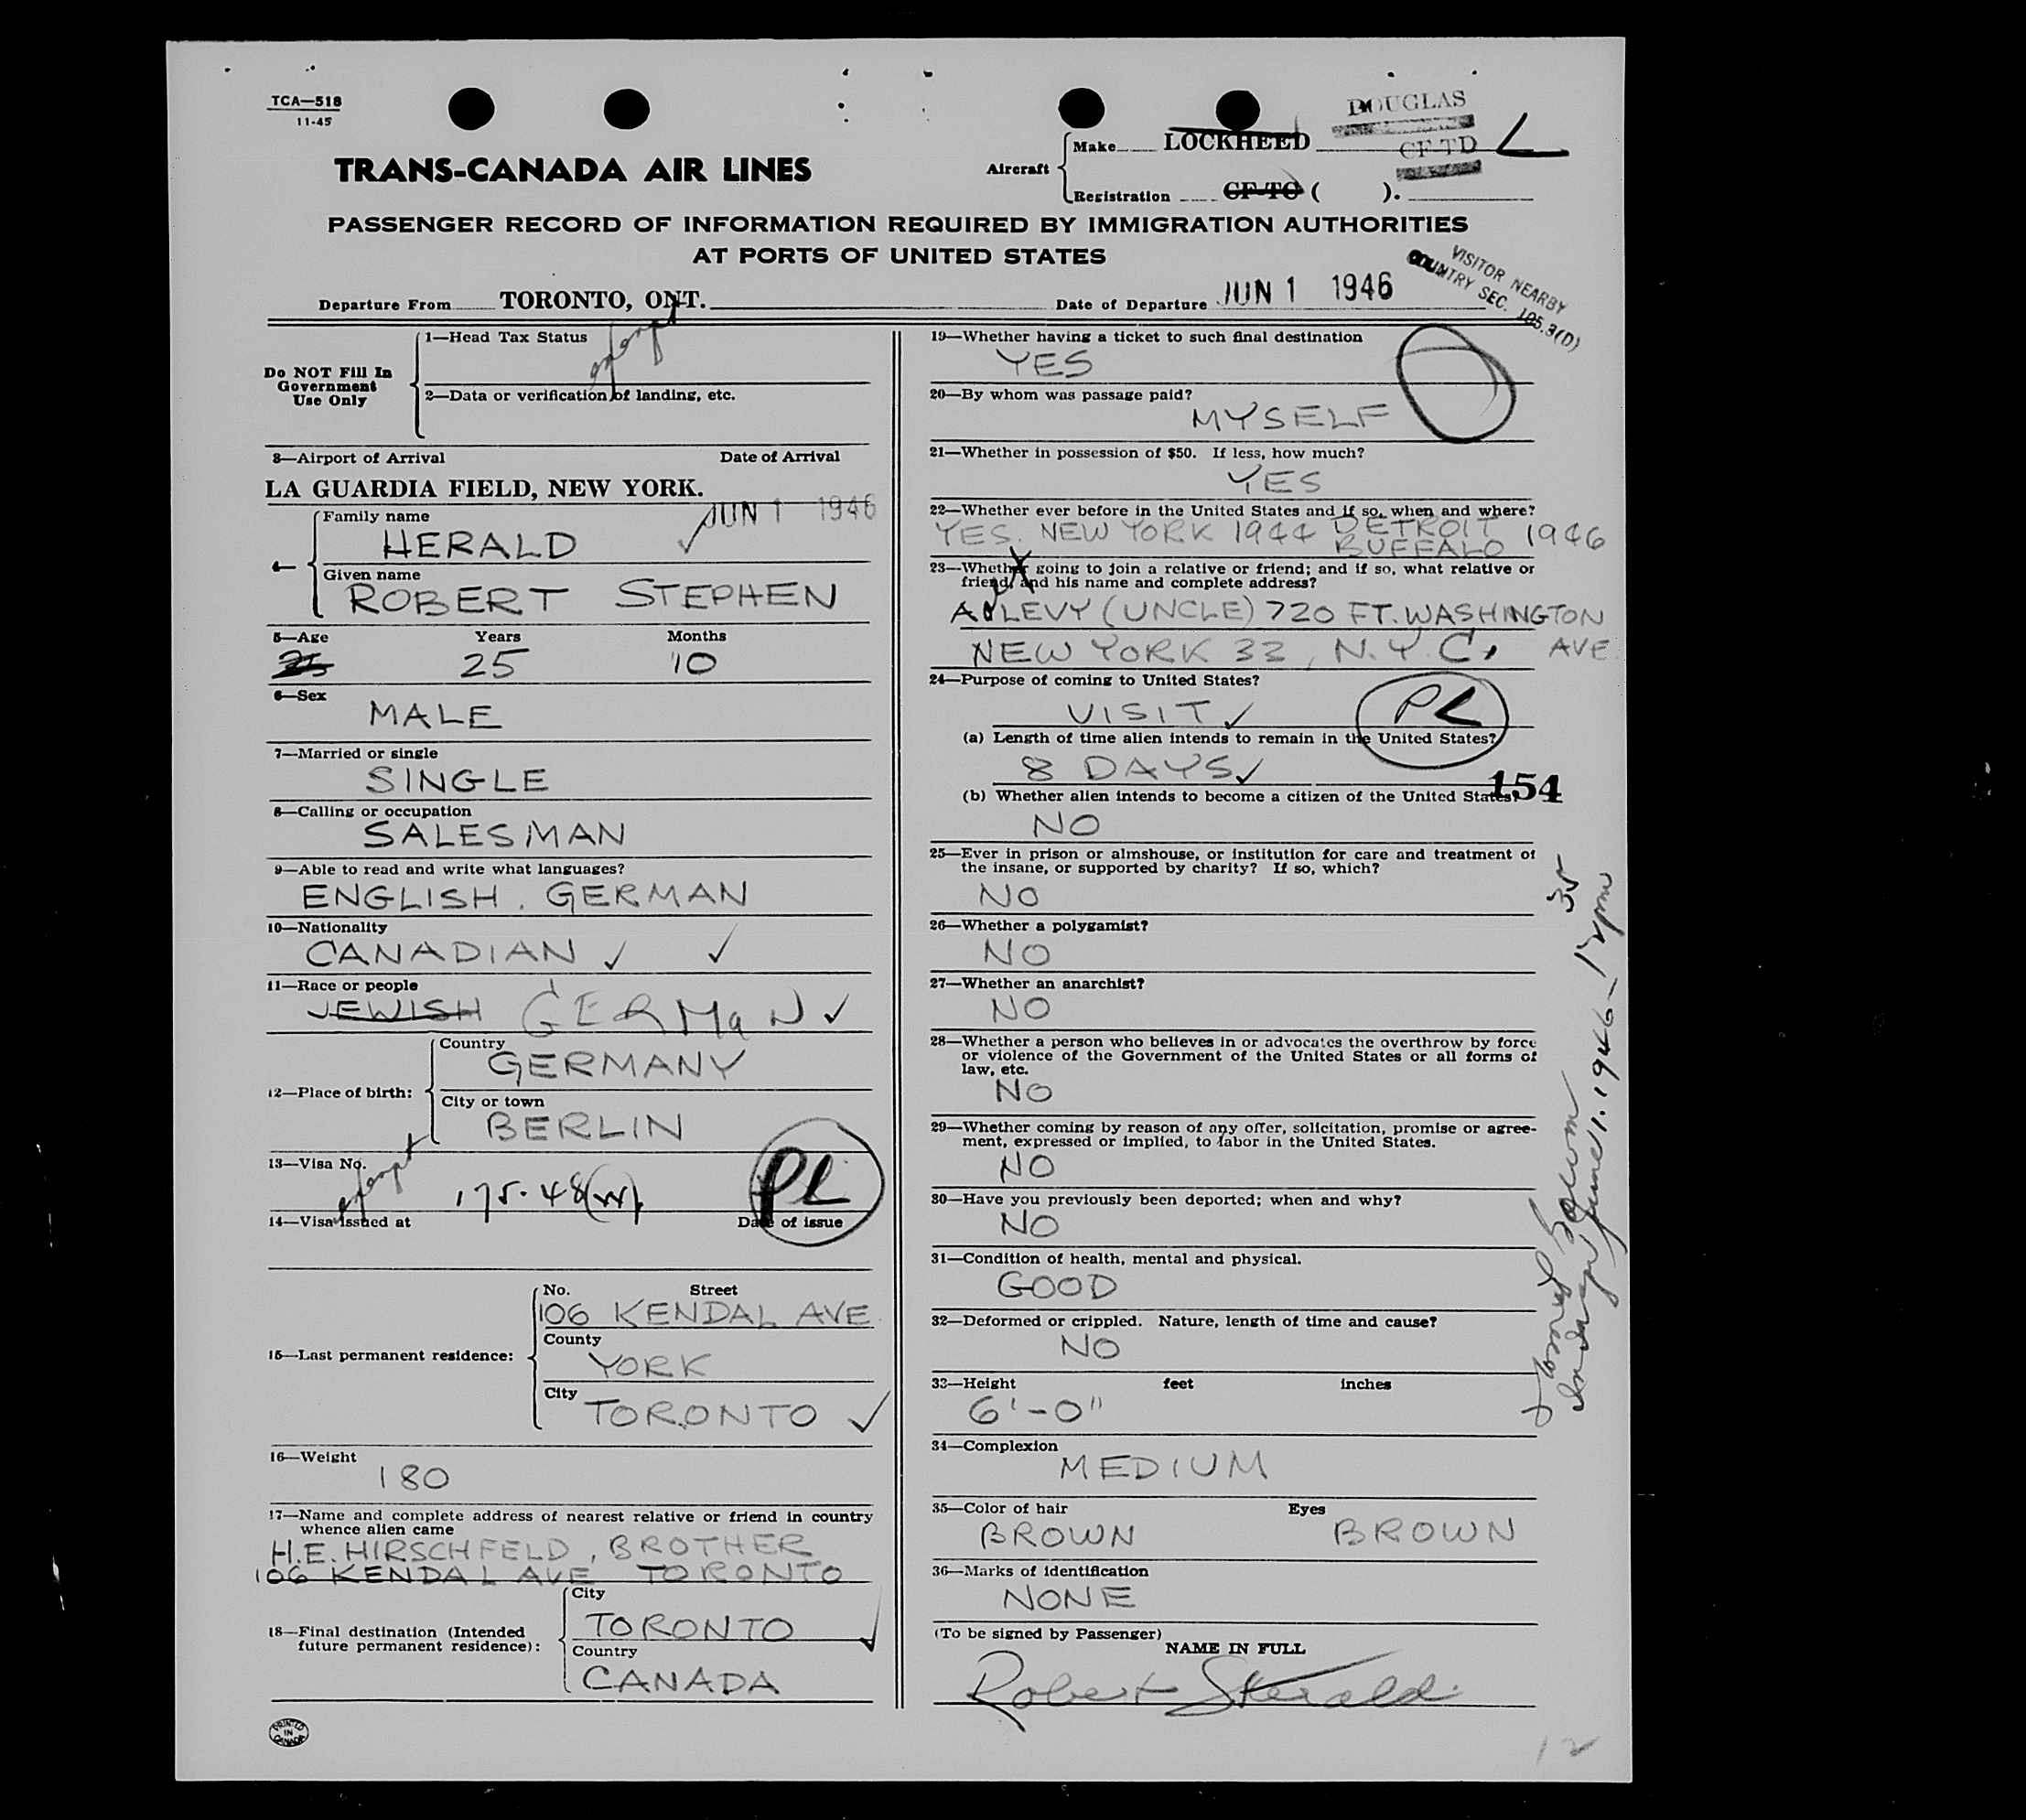 TCA—518
11-45
TRANS-CANADA AIR LINES
Aircraft
Make LOCKHEED
DOUGLAS
Registration CF-TC ( ).
CF-TD
L
PASSENGER RECORD OF INFORMATION REQUIRED BY IMMIGRATION AUTHORITIES
AT PORTS OF UNITED STATES
VISITOR NEARBY
COUNTRY SEC. 105.3(D)
Departure From TORONTO, ONT.
Date of Departure JUN 1 1946
Do NOT Fill In
Government
Use Only
1—Head Tax Status
exempt
2—Data or verification of landing, etc.
3—Airport of Arrival Date of Arrival
LA GUARDIA FIELD, NEW YORK.
JUN 1 1946
4—
Family name
HERALD
Given name
ROBERT STEPHEN
5—Age Years Months
25 25 10
6—Sex
MALE
7—Married or single
SINGLE
8—Calling or occupation
SALESMAN
9—Able to read and write what languages?
ENGLISH. GERMAN
10—Nationality
CANADIAN ✓ ✓
11—Race or people
JEWISH GERMaN ✓
12—Place of birth:
Country
GERMANY
City or town
BERLIN
13—Visa No.
exempt
175.48(W)
PL
14—Visa issued at Date of issue
15—Last permanent residence:
No. Street
106 KENDAL AVE.
County
YORK
City
TORONTO ✓
16—Weight
180
17—Name and complete address of nearest relative or friend in country
whence alien came
H.E. HIRSCHFELD, BROTHER
106 KENDAL AVE TORONTO
18—Final destination (Intended
future permanent residence):
City
TORONTO
Country
CANADA
PRINTED
IN
CANADA
19—Whether having a ticket to such final destination
YES
20—By whom was passage paid?
MYSELF
21—Whether in possession of $50. If less, how much?
YES
22—Whether ever before in the United States and if so, when and where?
YES. NEW YORK 1944 DETROIT 1946
BUFFALO
23—Whether going to join a relative or friend; and if so, what relative or
friend, and his name and complete address?
A. LEVY (UNCLE) 720 FT. WASHINGTON
NEW YORK 33, N.Y.C. AVE.
24—Purpose of coming to United States?
VISIT ✓
PL
(a) Length of time alien intends to remain in the United States?
8 DAYS ✓
154
(b) Whether alien intends to become a citizen of the United States?
NO
25—Ever in prison or almshouse, or institution for care and treatment of
the insane, or supported by charity? If so, which?
NO
26—Whether a polygamist?
NO
27—Whether an anarchist?
NO
28—Whether a person who believes in or advocates the overthrow by force
or violence of the Government of the United States or all forms of
law, etc.
NO
29—Whether coming by reason of any offer, solicitation, promise or agree-
ment, expressed or implied, to labor in the United States.
NO
30—Have you previously been deported; when and why?
NO
31—Condition of health, mental and physical.
GOOD
32—Deformed or crippled. Nature, length of time and cause?
NO
33—Height feet inches
6'-0"
34—Complexion
MEDIUM
35—Color of hair Eyes
BROWN BROWN
36—Marks of identification
NONE
(To be signed by Passenger)
NAME IN FULL
Robert S Herald.
35
June 1. 1946
12